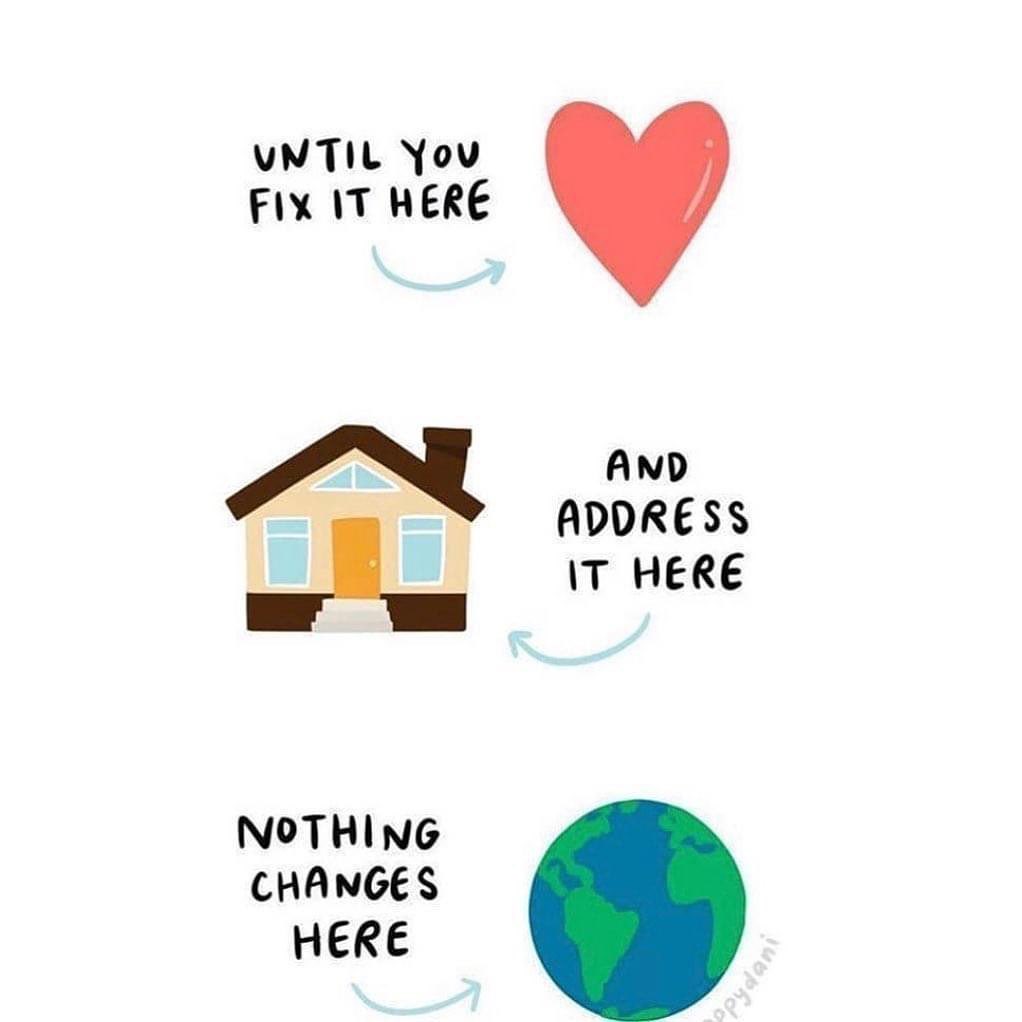 UNTIL YOU
FIX IT HERE
AND
ADDRESS
IT HERE
NOTHING
CHANGES
HERE